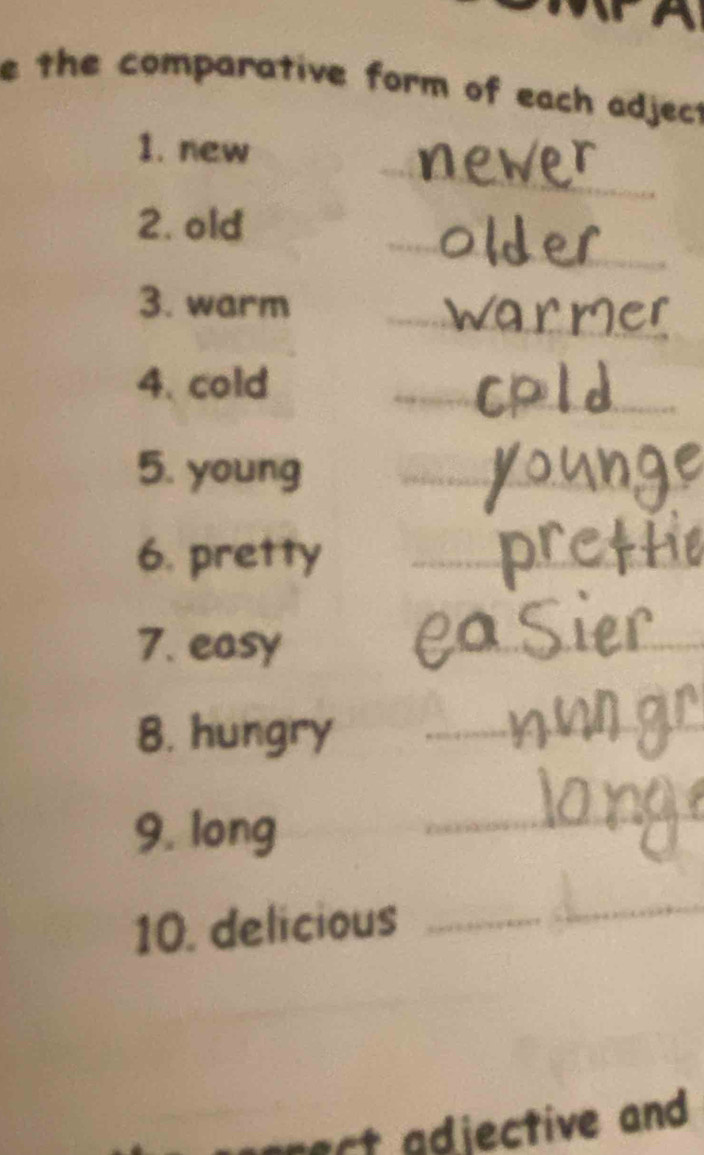 OMPA
e the comparative form of each adject
1. new newer
2. old older
3. warm warmer
4. cold cold
5. young younge
6. pretty prettie
7. easy easier
8. hungry nungr
9. long longe
10. delicious
rrect adjective and